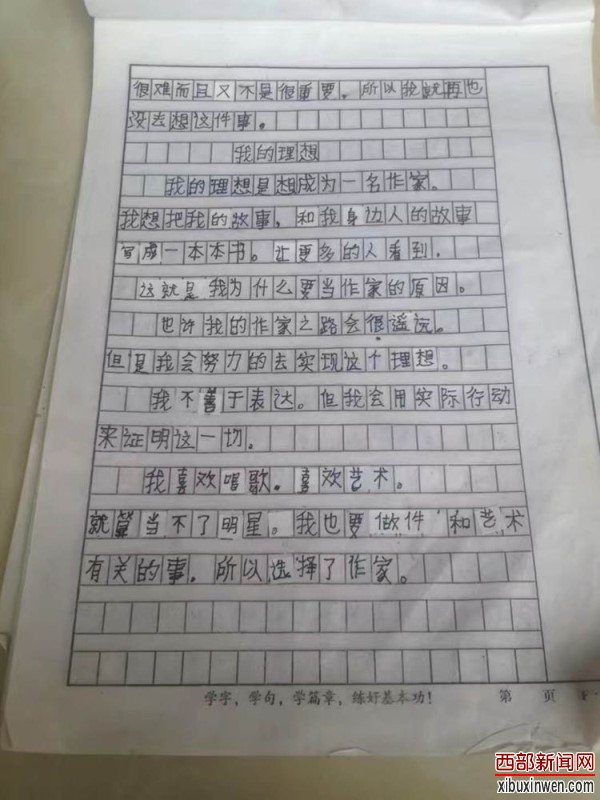 很难而且又不是很重要。所以我就再也
没去想这件事。
我的理想
我的理想是想成为一名作家。
我想把我的故事，和我身边人的故事
写成一本本书。让更多的人看到，
这就是我为什么要当作家的原因。
也许我的作家之路会很遥远。
但是我会努力的去实现这个理想。
我不善于表达。但我会用实际行动
来证明这一切。
我喜欢唱歌。喜欢艺术。
就算当不了明星。我也要做件 和艺术
有关的事，所以选择了作家。
学字，学句，学篇章，练好基本功！ 第 页
西部新闻网
xibuxinwen.com